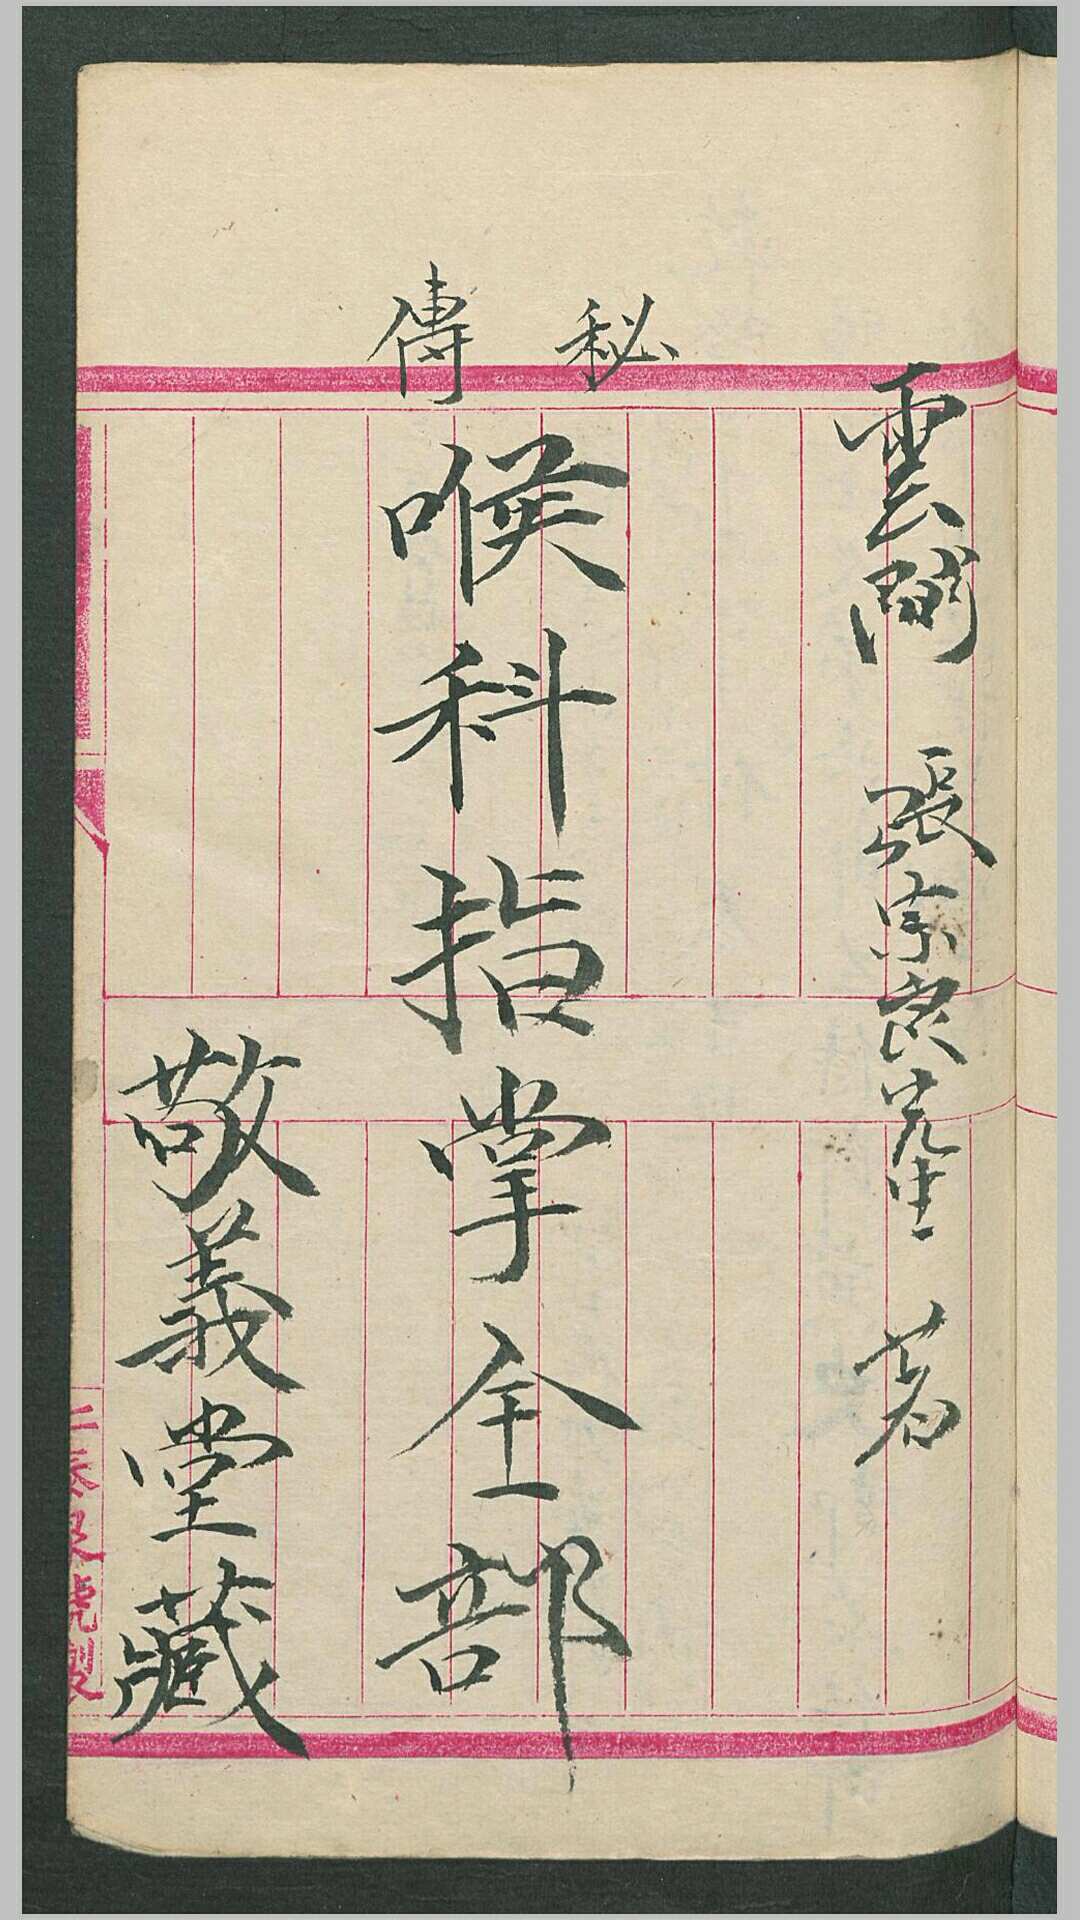 秘傳
雲間 張宗良先生 著
喉科指掌全部
敬義堂藏
號製